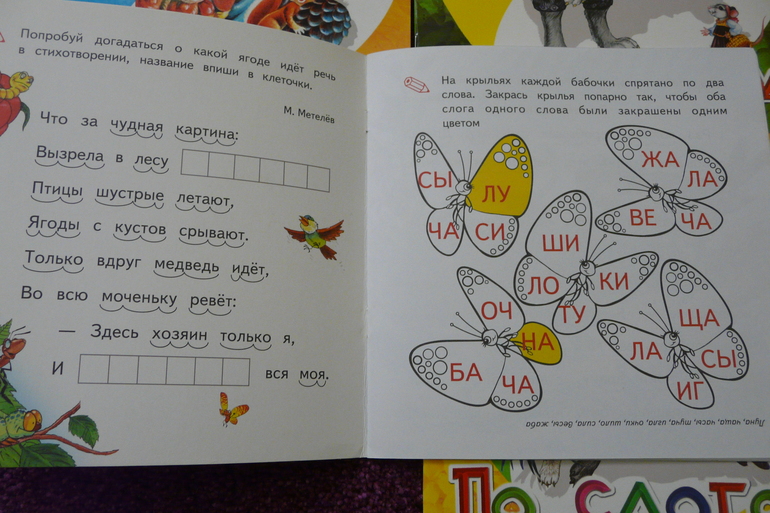 Попробуй догадаться о какой ягоде идёт речь
в стихотворении, название впиши в клеточки.
М. Метелёв
Что за чудная картина:
Вызрела в лесу
Птицы шустрые летают,
Ягоды с кустов срывают.
Только вдруг медведь идёт,
Во всю моченьку ревёт:
— Здесь хозяин только я,
И вся моя.
На крыльях каждой бабочки спрятано по два
слова. Закрась крылья попарно так, чтобы оба
слога одного слова были закрашены одним
цветом
СЫ ЛУ
ЧА СИ
ЖА ЛА
ВЕ ЧА
ШИ
ЛО КИ
ТУ
ОЧ НА
БА ЧА
ЩА
ЛА СЫ
ИГ
Луна, чаща, часы, туча, игла, очки, шило, сила, весы, жаба
По